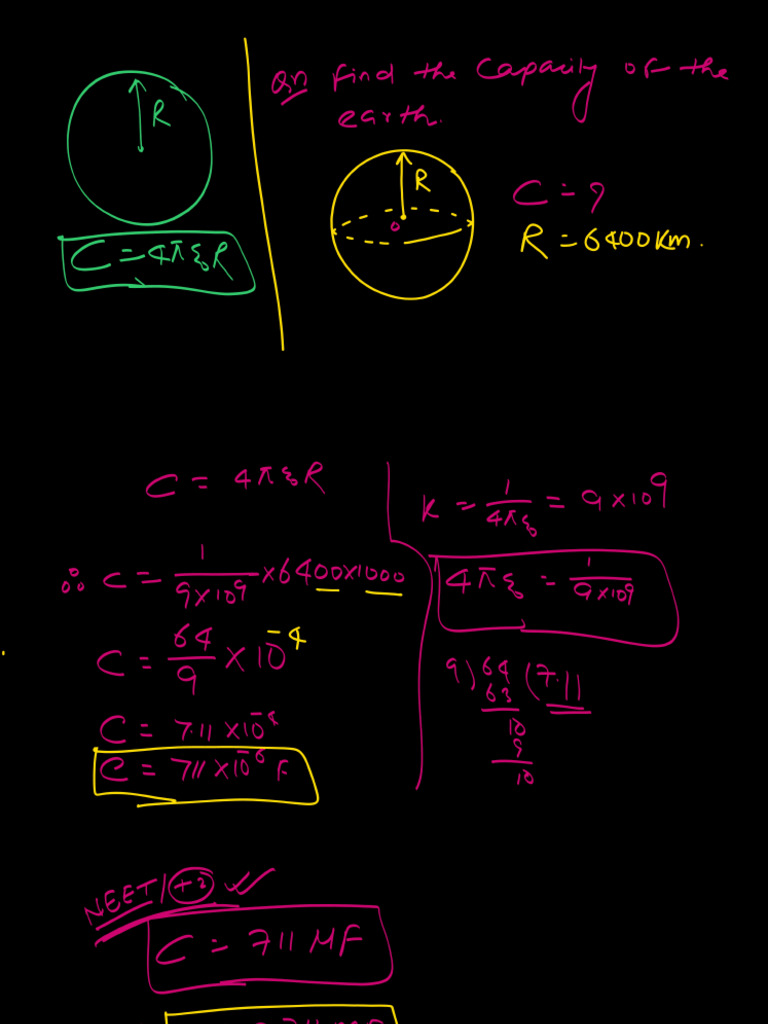 R
C = 4πε₀R
Qn Find the Capacity of the
earth.
R
o
C = ?
R = 6400 km.
C = 4πε₀R
∴ C = 1/(9×10⁹) ×6400×1000
C = 64/9 × 10⁻⁴
C = 7.11 ×10⁻⁴
C = 711 ×10⁻⁶ F
K = 1/4πε₀ = 9×10⁹
4πε₀ = 1/(9×10⁹)
9) 64 (7.11
63
10
9
10
NEET/+2 ✓
C = 711 MF